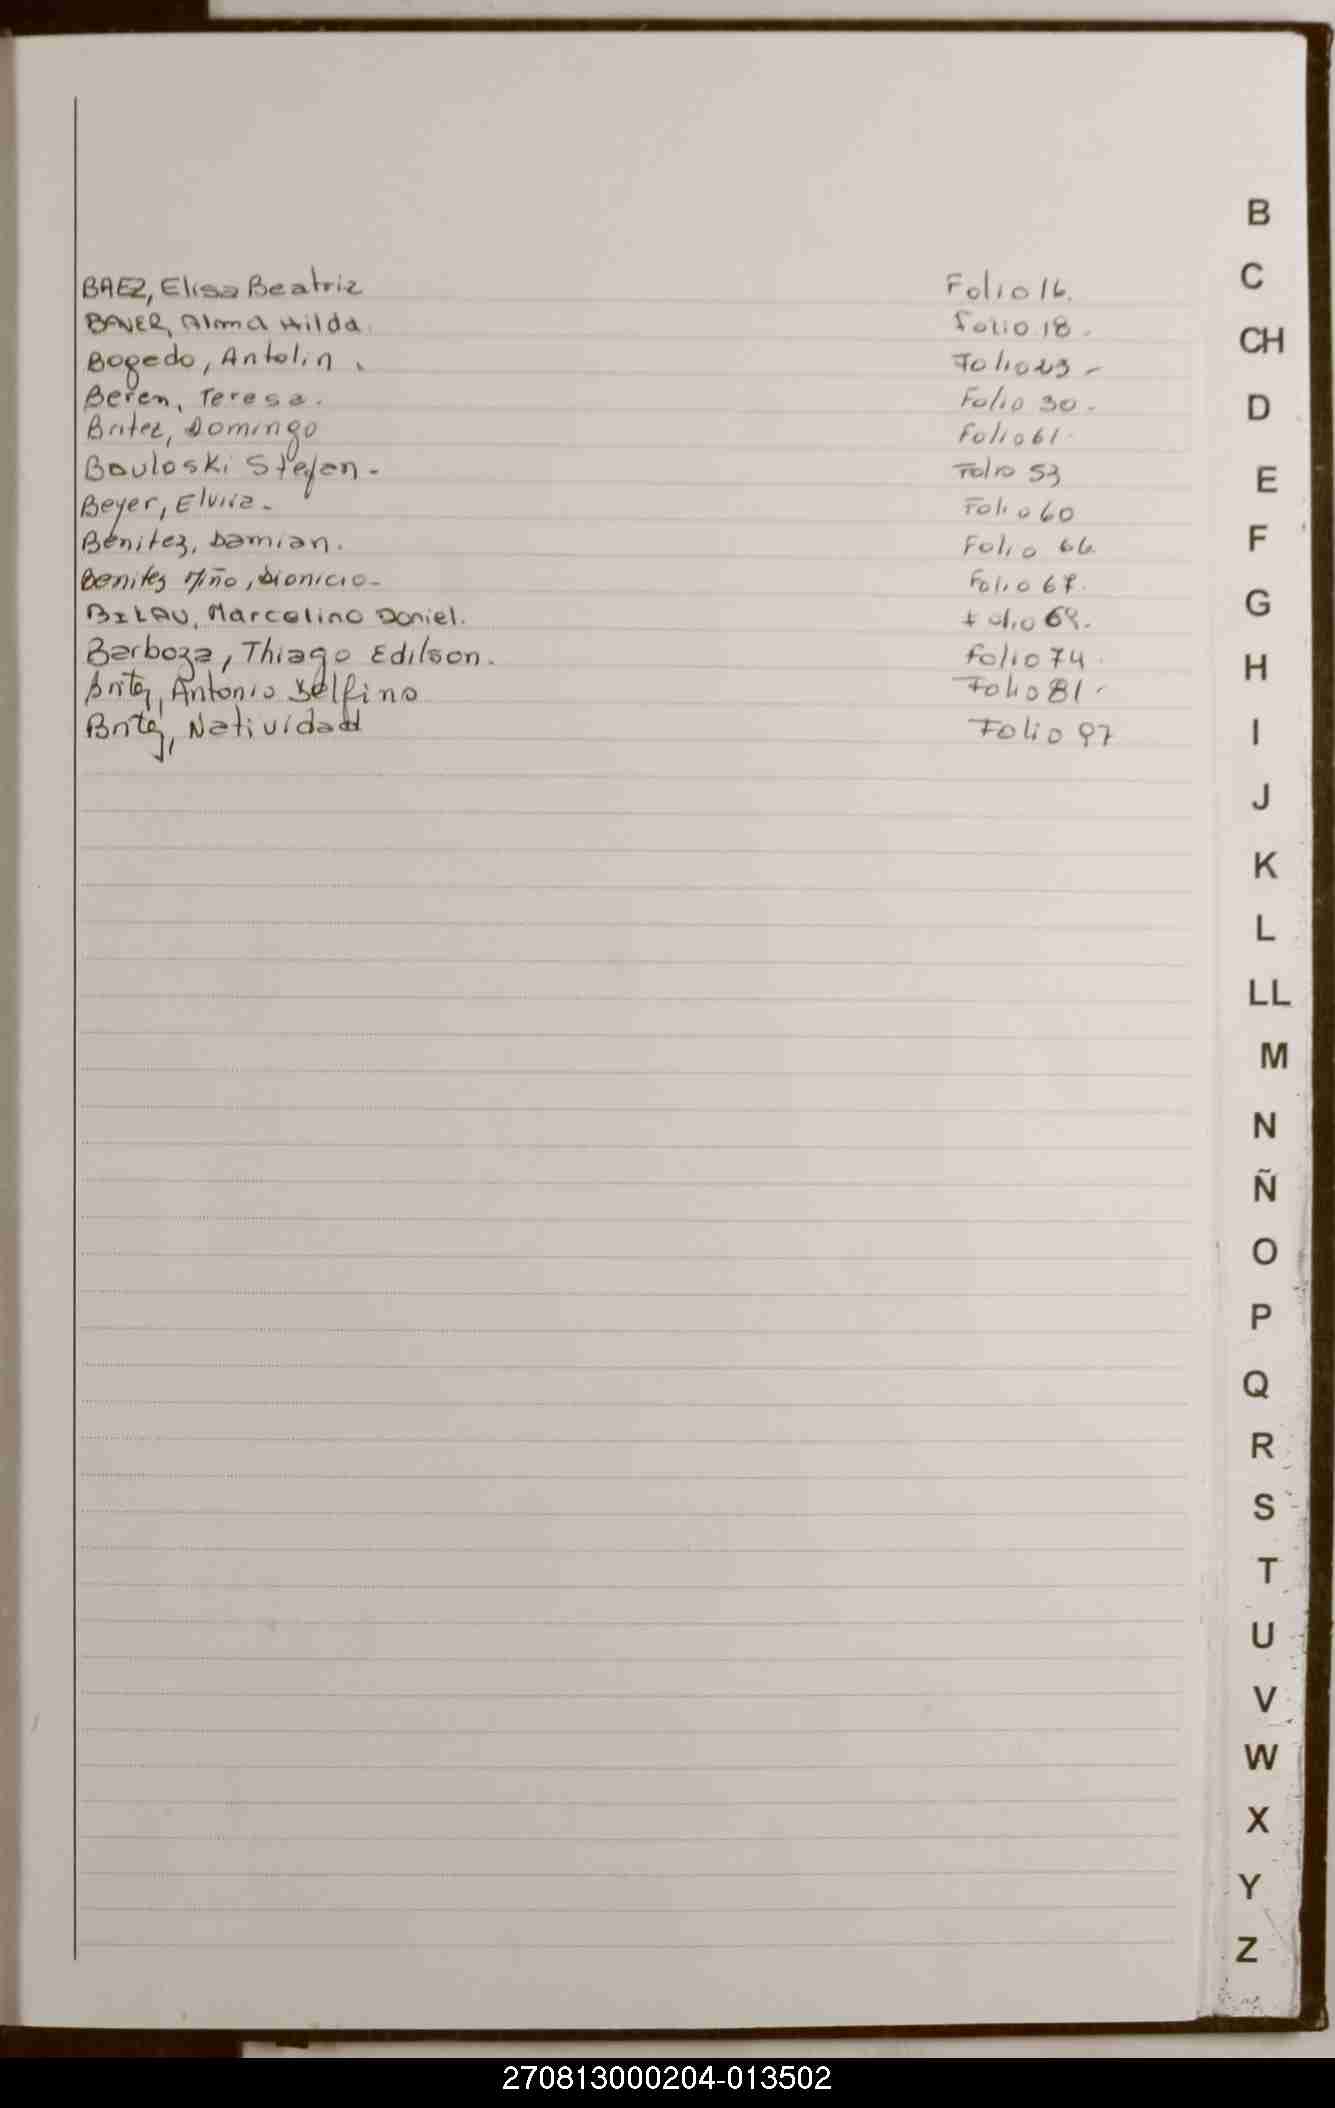 B
C
CH
D
E
F
G
H
I
J
K
L
LL
M
N
Ñ
O
P
Q
R
S
T
U
V
W
X
Y
Z
BAEZ, Elisa Beatriz Folio 16.
BAUER, Alma Hilda. Folio 18.
Bogedo, Antolin. Folio
Beren, Teresa. Folio 30.-
Britez, Domingo Folio 61.
Bouloski Stefan.- Folio 53
Beyer, Elvira.- Folio 60
Benitez, Damian. Folio 66.
Benitez Miño, Dionicio.- Folio 67.
BILAU, Marcelino Daniel. Folio 69.
Barboza, Thiago Edilson. Folio 74.
Britez, Antonio Delfino Folio 81.-
Britez, Natividad Folio 97
270813000204-013502